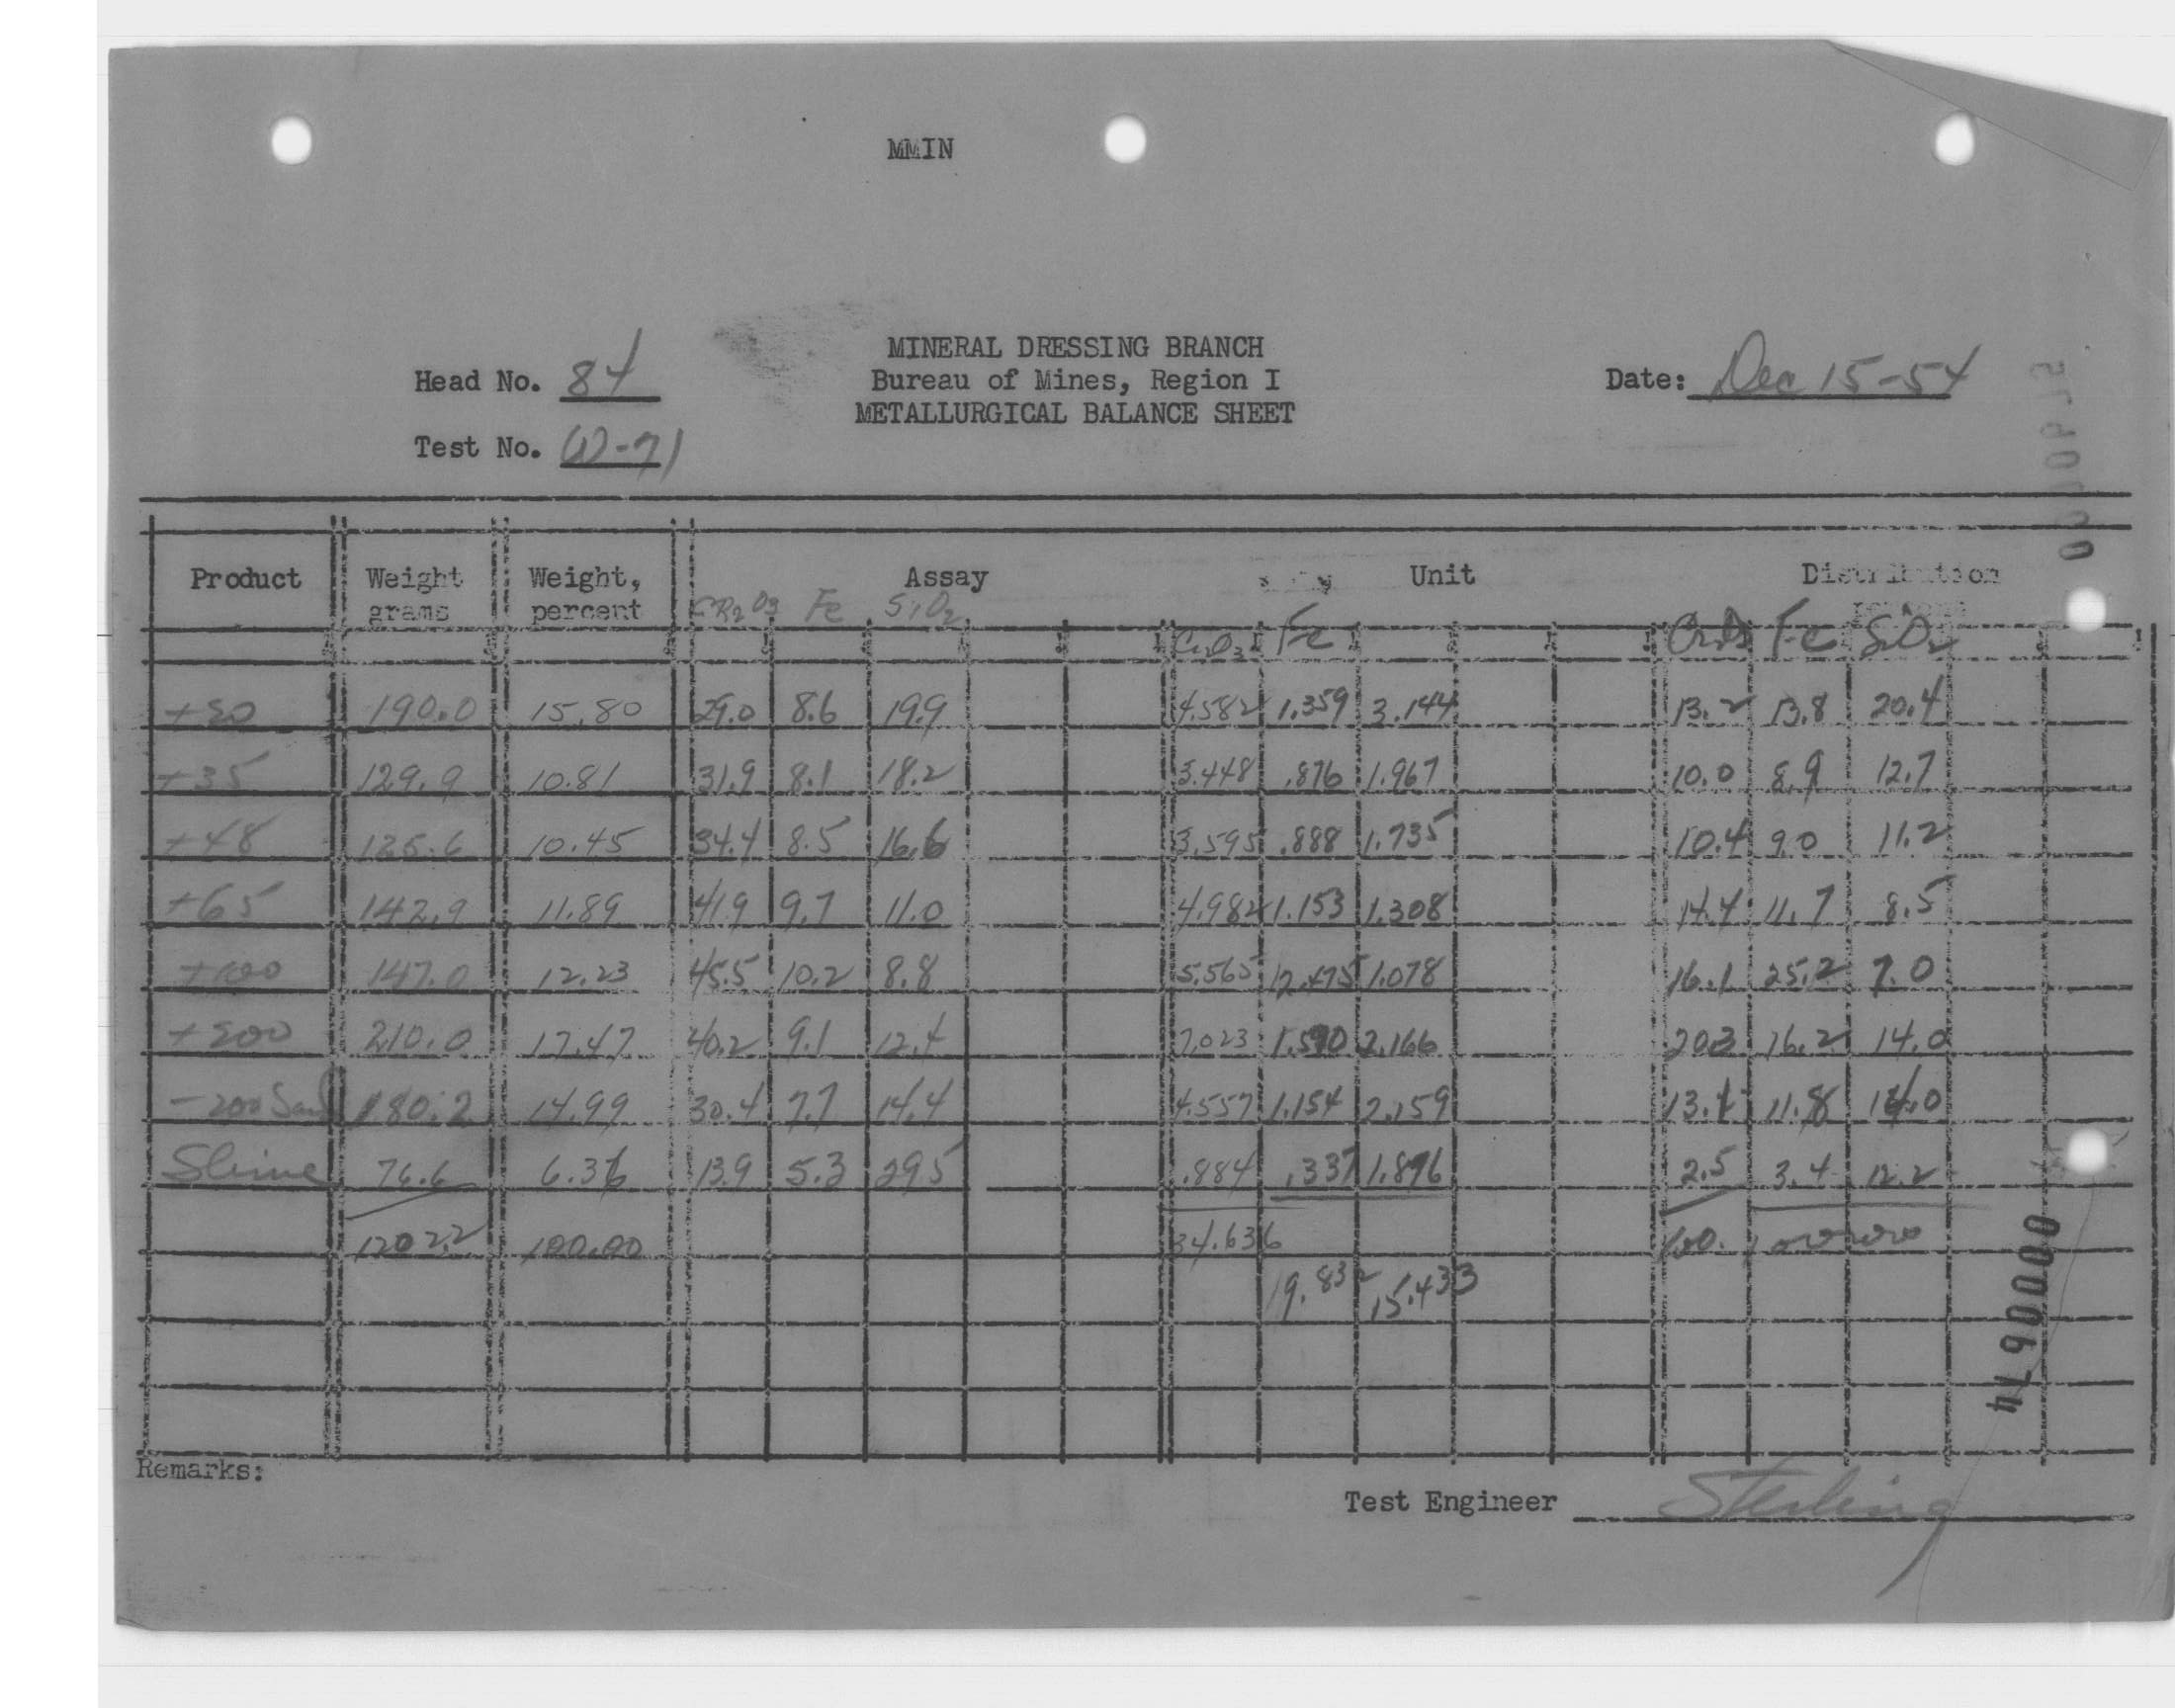 MMIN
MINERAL DRESSING BRANCH
Head No. 84 Bureau of Mines, Region I Date: Dec 15-54
METALLURGICAL BALANCE SHEET
Test No. W-71
Product Weight grams Weight, percent Assay Unit Distribution
CR2O3 Fe SiO2 Cr2O3 Fe Cr2O3 Fe SiO2
190.0 15.80 29.0 8.6 19.9 4.582 1.359 3.144 13.2 13.8 20.4
+35 129.9 10.81 31.9 8.1 18.2 3.448 .876 1.967 10.0 8.9 12.7
+48 125.6 10.45 34.4 8.5 16.6 3.595 .888 1.735 10.4 9.0 11.2
+65 142.9 11.89 41.9 9.7 11.0 4.982 1.153 1.308 14.4 11.7 8.5
+100 147.0 12.23 45.5 10.2 8.8 5.565 12.475 1.078 16.1 25.2 7.0
+200 210.0 17.47 40.2 9.1 12.4 7.023 1.590 2.166 20.3 16.2 14.0
-200 Sand 180.2 14.99 30.4 7.7 14.4 4.557 1.154 2.159 13.1 11.8 14.0
Slime 76.6 6.36 13.9 5.3 29.5 .884 .337 1.876 2.5 3.4 12.2
1202.2 100.00 34.636 100.
19.832 15.433
Remarks:
Test Engineer Sterling
0000674